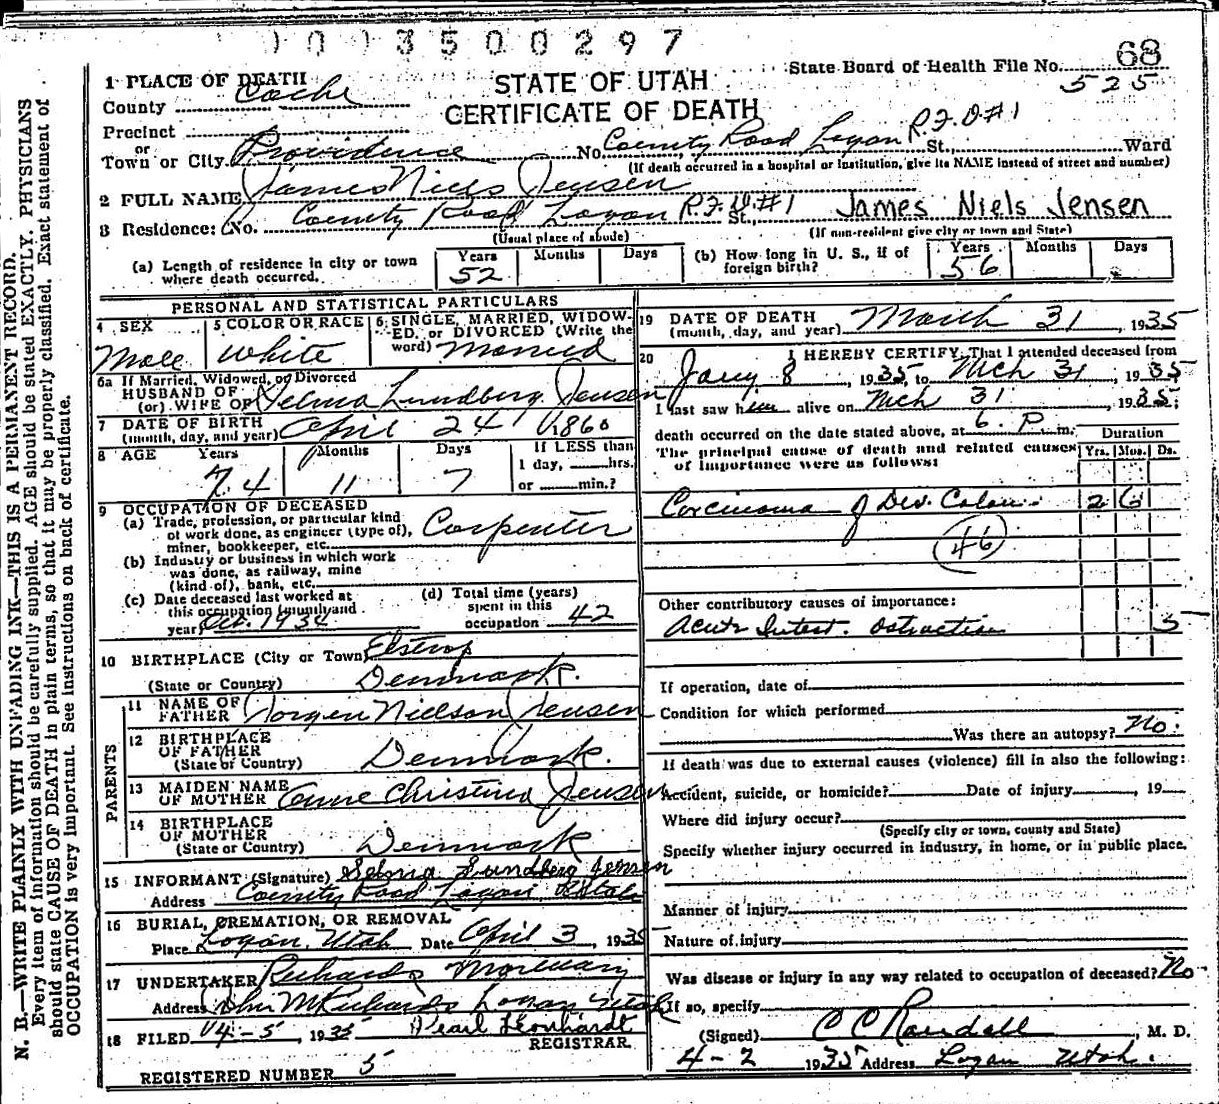 0 3 5 0 0 2 9 7
68
1 PLACE OF DEATH
STATE OF UTAH
State Board of Health File No. 525
County Cache
CERTIFICATE OF DEATH
Precinct
or
Town or City Providence No. County Road Logan R.F.D.#1 St., Ward
(If death occurred in a hospital or institution, give its NAME instead of street and number)
2 FULL NAME James Niels Jensen
3 Residence: No. County Road Logan R.F.D.#1 St., James Niels Jensen
(Usual place of abode) (If non-resident give city or town and State)
(a) Length of residence in city or town where death occurred. Years 52 Months Days
(b) How long in U. S., if of foreign birth? Years 56 Months Days
PERSONAL AND STATISTICAL PARTICULARS
4 SEX Male
5 COLOR OR RACE White
6 SINGLE, MARRIED, WIDOW-
ED, or DIVORCED (Write the
word) Married
6a If Married, Widowed, or Divorced
HUSBAND OF
(or) WIFE OF Selma Lundberg Jensen
7 DATE OF BIRTH
(month, day, and year) April 24 1860
8 AGE Years 74 Months 11 Days 7
If LESS than
1 day, hrs.
or min.?
9 OCCUPATION OF DECEASED
(a) Trade, profession, or particular kind
of work done, as engineer (type of),
miner, bookkeeper, etc. Carpenter
(b) Industry or business in which work
was done, as railway, mine
(kind of), bank, etc.
(c) Date deceased last worked at
this occupation (month and
year) Oct. 1934
(d) Total time (years)
spent in this
occupation 42
10 BIRTHPLACE (City or Town) Elstrop
(State or Country) Denmark.
PARENTS
11 NAME OF
FATHER Jorgen Nielson Jensen
12 BIRTHPLACE
OF FATHER
(State or Country) Denmark.
13 MAIDEN NAME
OF MOTHER Anne Christina Jensen
14 BIRTHPLACE
OF MOTHER
(State or Country) Denmark
15 INFORMANT (Signature) Selma Lundberg Jensen
Address County Road Logan Utah
16 BURIAL, CREMATION, OR REMOVAL
Place Logan, Utah Date April 3, 1935
17 UNDERTAKER Richards Mortuary
Address John M Richards Logan Utah
18 FILED 4-5 1935 Pearl Leonhardt
REGISTRAR
REGISTERED NUMBER 5
19 DATE OF DEATH
(month, day, and year) March 31, 1935
20 I HEREBY CERTIFY, That I attended deceased from
Jany 8, 1935, to Mch 31, 1935
I last saw him alive on Mch 31 1935;
death occurred on the date stated above, at 6. P. m.
Duration
The principal cause of death and related causes
of importance were as follows: Yrs. Mos. Ds.
Carcinoma of Des. Colon. 2 6
(46)
Other contributory causes of importance:
Acute Intest. Obstruction 5
If operation, date of
Condition for which performed
Was there an autopsy? No.
If death was due to external causes (violence) fill in also the following:
Accident, suicide, or homicide? Date of injury, 19
Where did injury occur?
(Specify city or town, county and State)
Specify whether injury occurred in industry, in home, or in public place.
Manner of injury
Nature of injury
Was disease or injury in any way related to occupation of deceased? No
If so, specify
(Signed) C C Randall, M. D.
4-2 1935 Address Logan Utah.
N. B.—WRITE PLAINLY WITH UNFADING INK—THIS IS A PERMANENT RECORD.
Every item of information should be carefully supplied. AGE should be stated EXACTLY. PHYSICIANS
should state CAUSE OF DEATH in plain terms, so that it may be properly classified. Exact statement of
OCCUPATION is very important. See instructions on back of certificate.